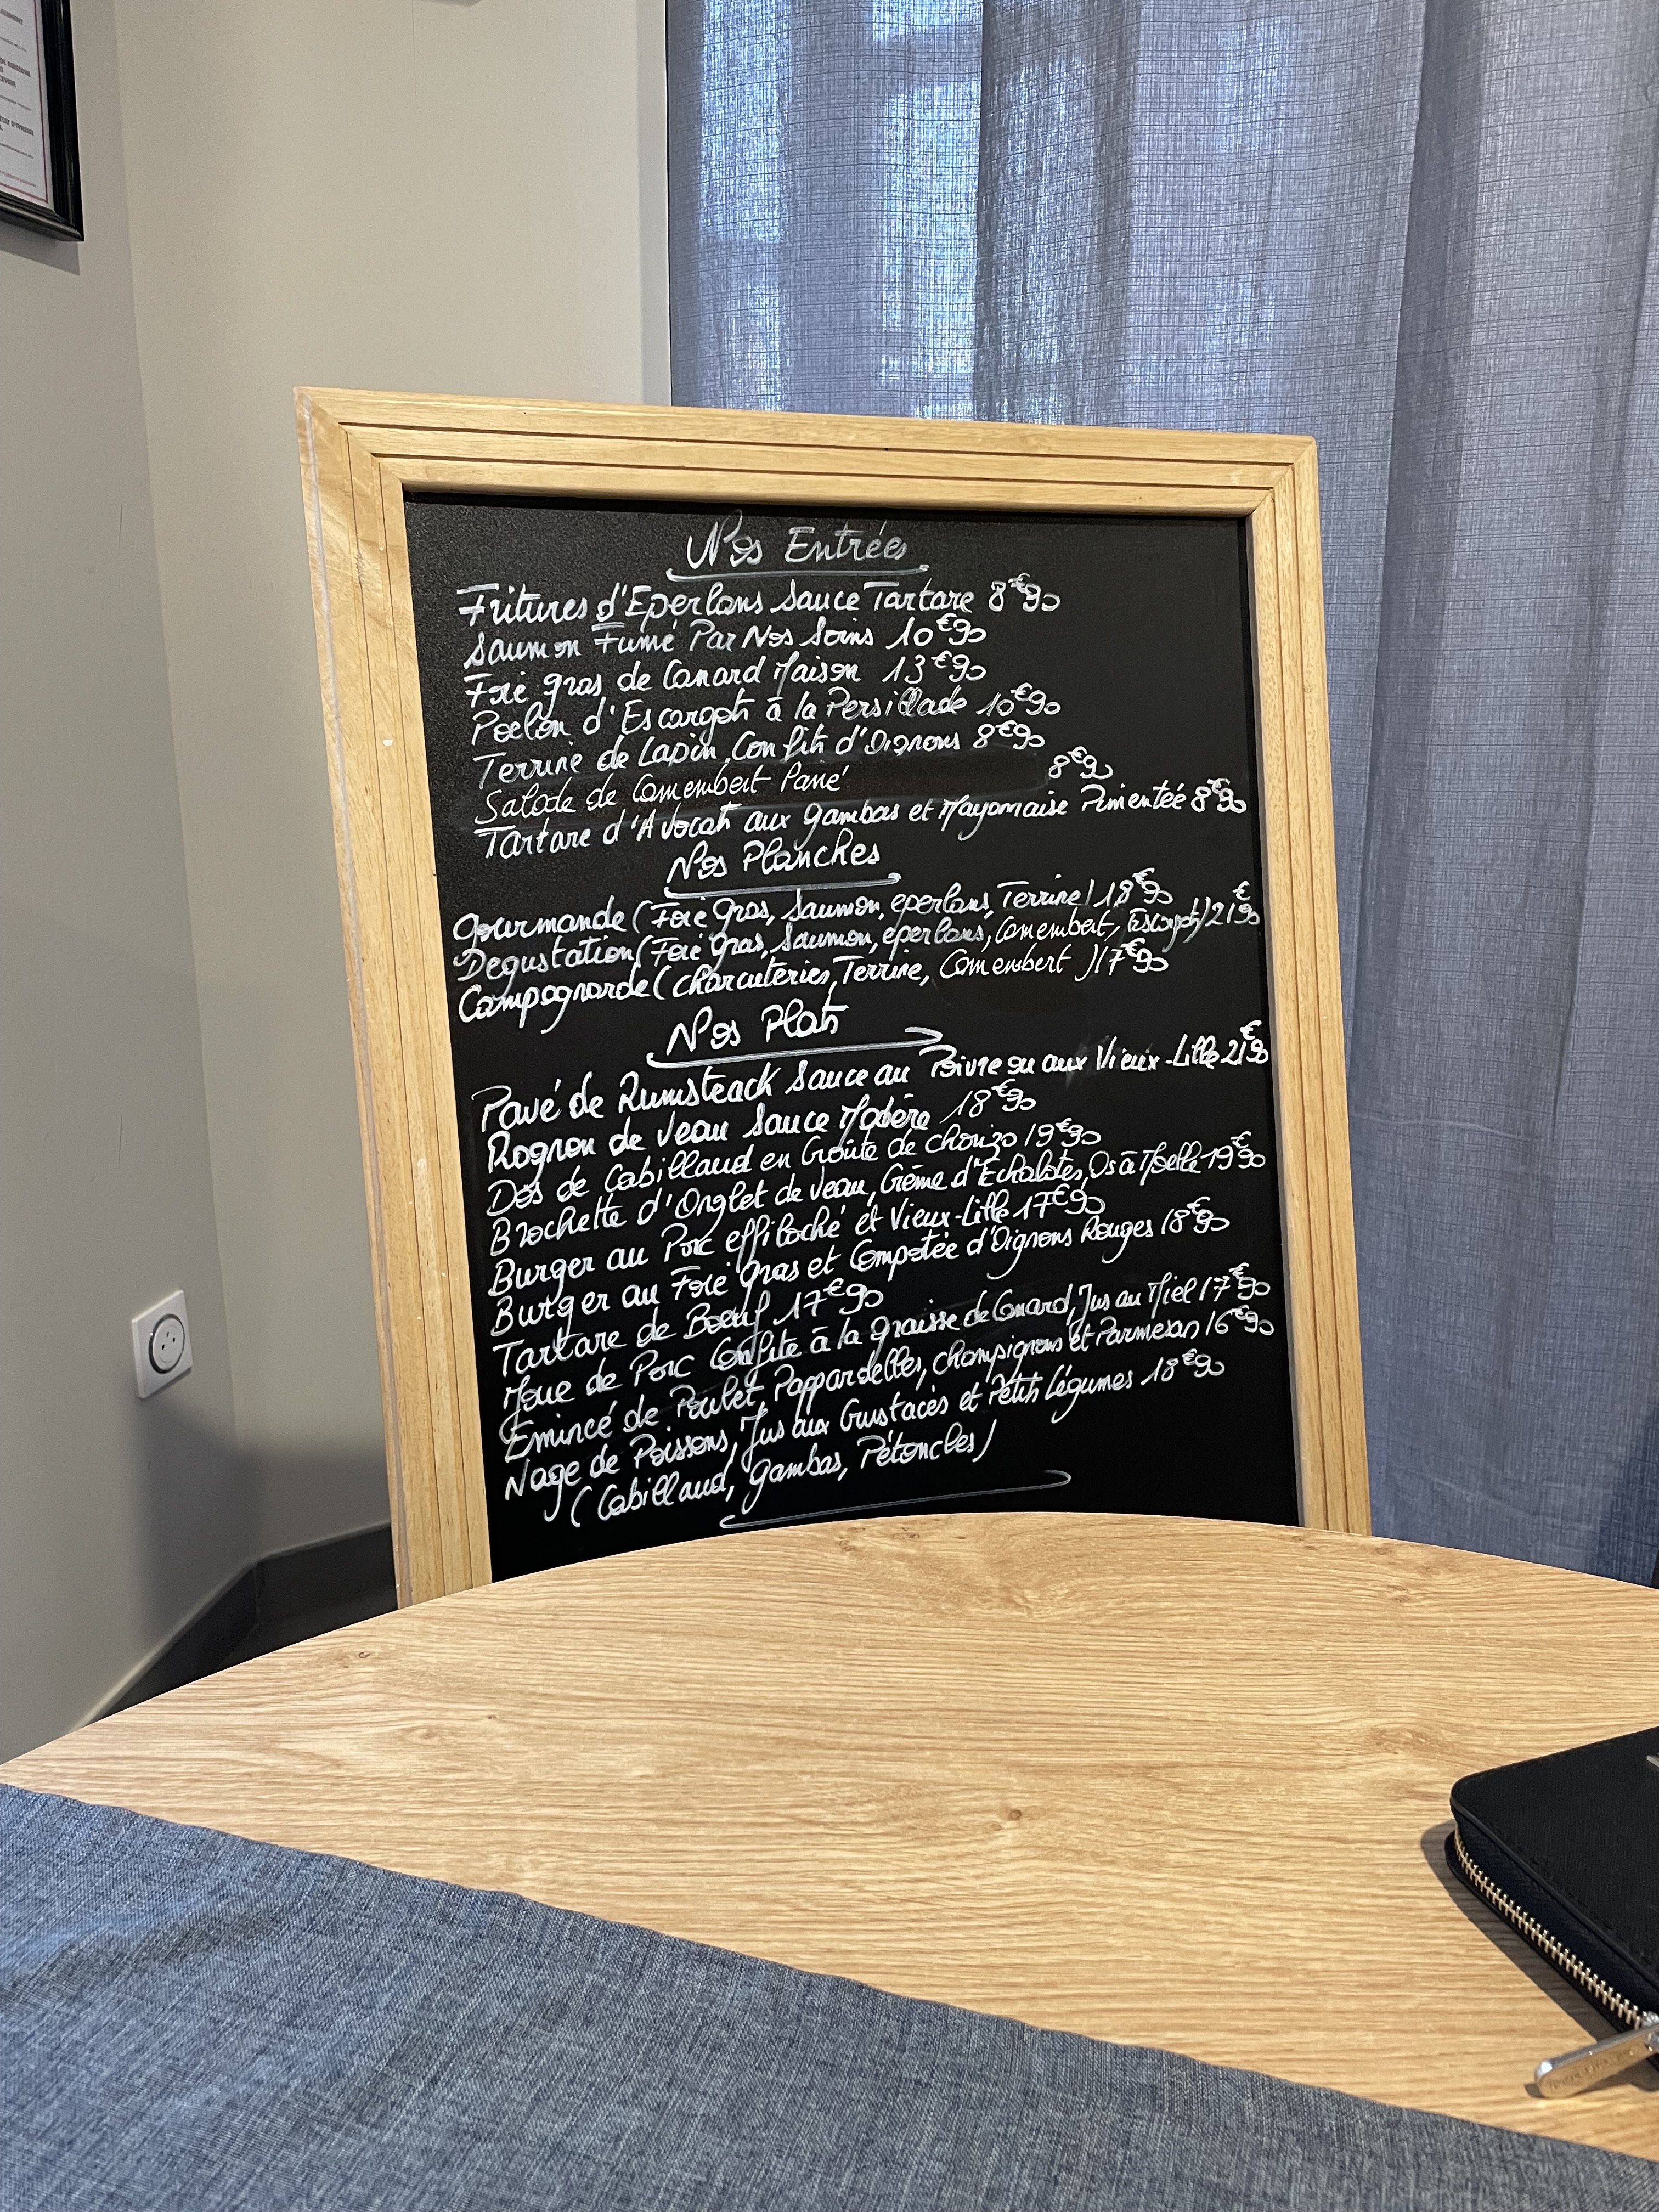 Nos Entrées
Fritures d'Eperlans Sauce Tartare 8€90
Saumon Fumé Par Nos Soins 10€90
Foie gras de Canard Maison 13€90
Poelon d'Escargots à la Persillade 10€90
Terrine de Lapin, Confits d'Oignons 8€90
Salade de Camembert Pané 8€90
Tartare d'Avocats aux gambas et Mayonnaise Pimentée 8€90
Nos Planches
Gourmande (Foie gras, Saumon, eperlans, Terrine) 18€90
Degustation (Foie gras, Saumon, eperlans, Camembert, Escargots) 21€90
Campagnarde (Charcuteries, Terrine, Camembert) 17€90
Nos Plats
Pavé de Rumsteack Sauce au Poivre ou aux Vieux-Lille 21€90
Rognon de Veau Sauce Madère 18€90
Dos de Cabillaud en Croûte de chorizo 19€90
Brochette d'Onglet de Veau, Crème d'Echalotes, Os à Moelle 19€90
Burger au Porc effiloché et Vieux-Lille 17€90
Burger au Foie gras et Compotée d'Oignons Rouges 18€90
Tartare de Boeuf 17€90
Joue de Porc Confite à la graisse de Canard, Jus au Miel 17€90
Emincé de Poulet, Pappardelles, champignons et Parmesan 16€90
Nage de Poissons, Jus aux Crustacés et Petits Légumes 18€90
(Cabillaud, gambas, Pétoncles)